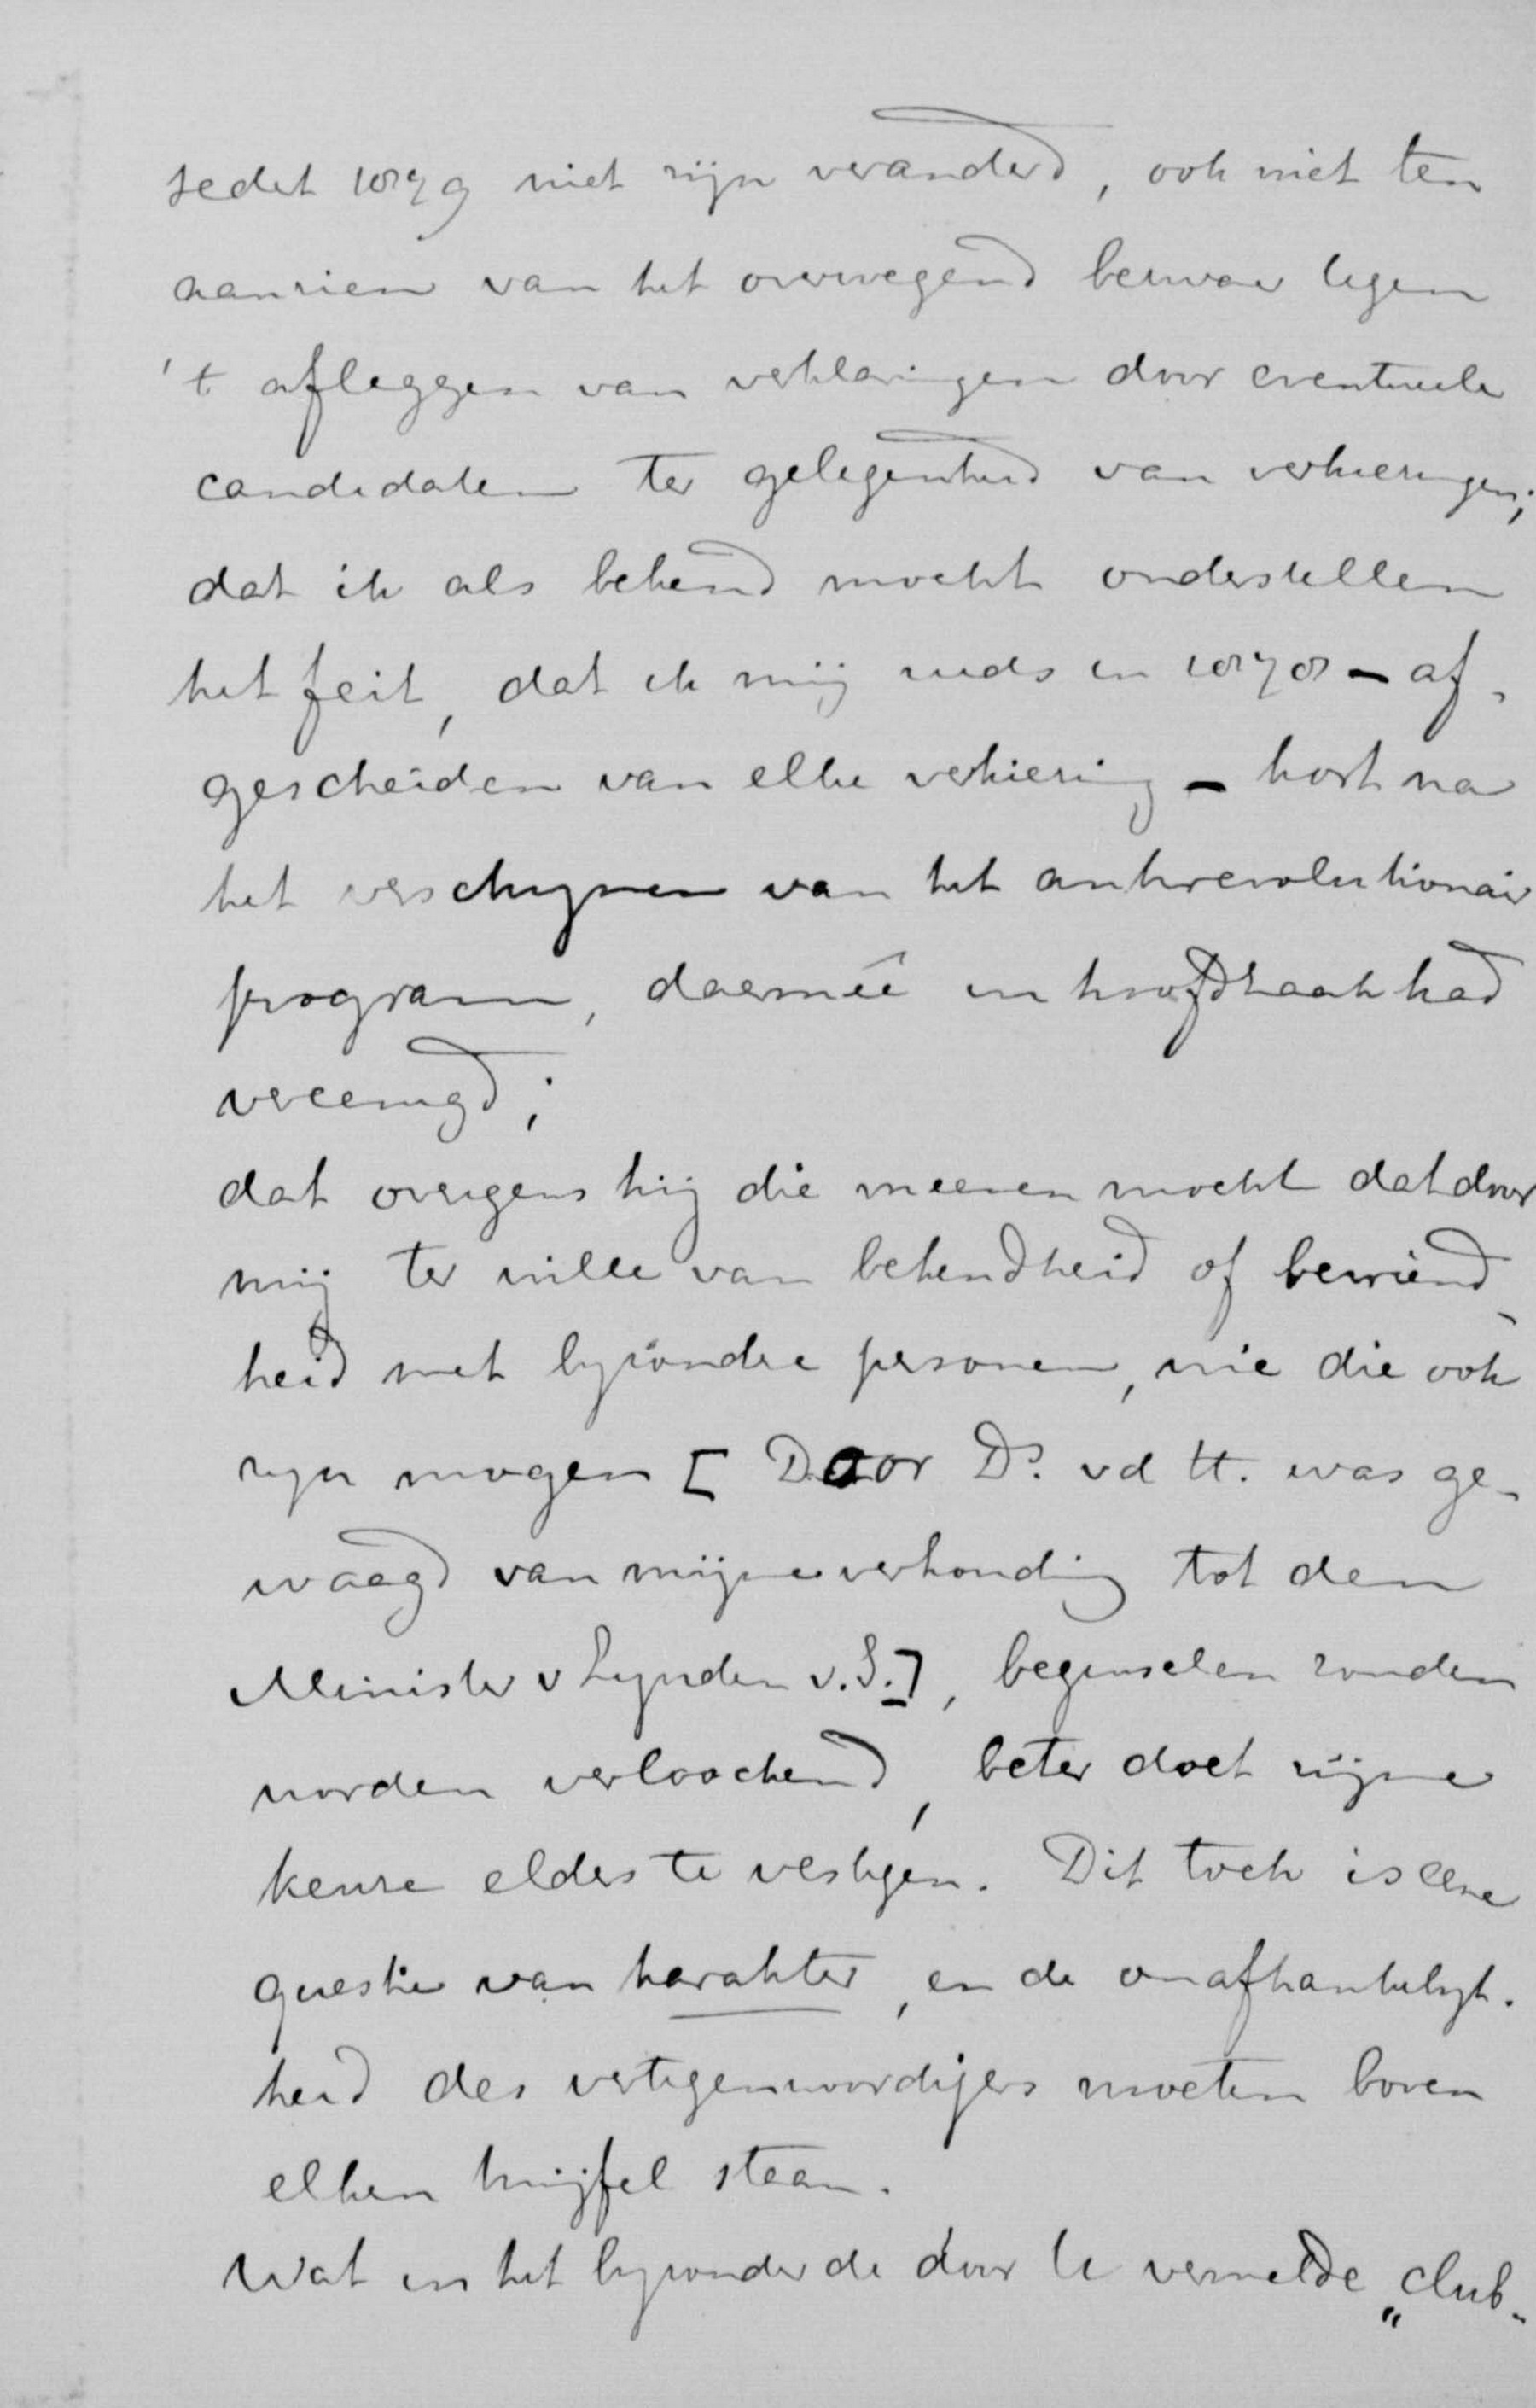 sedert 1879 niet zijn veranderd, ook niet ten
aanzien van het overwegend bezwaar tegen
't afleggen van verklaringen door eventueele
candidaten ter gelegenheid van verkiezingen;
dat ik als bekend mocht onderstellen
het feit, dat ik mij reeds in 1878 – af-
gescheiden van elke verkiezing – kort na
het verschijnen van het antirevolutionair
program, daarmeê in hoofdzaak had
vereenigd;
dat overigens hij die meenen mocht dat door
mij ter wille van bekendheid of bevriend-
heid met byzondere personen, wie die ook
zyn mogen [Door Ds. vd H. was ge-
waagd van mijne verhouding tot den
Minister v Lynden v. S.], beginselen zouden
worden verloochend, beter doet zijne
keuze elders te vestigen. Dit toch is eene
questie van karakter, en de onafhankelijk-
heid des vertegenwoordigers moeten boven
elken twijfel staan.
Wat in het byzonder de door U vermelde „club-